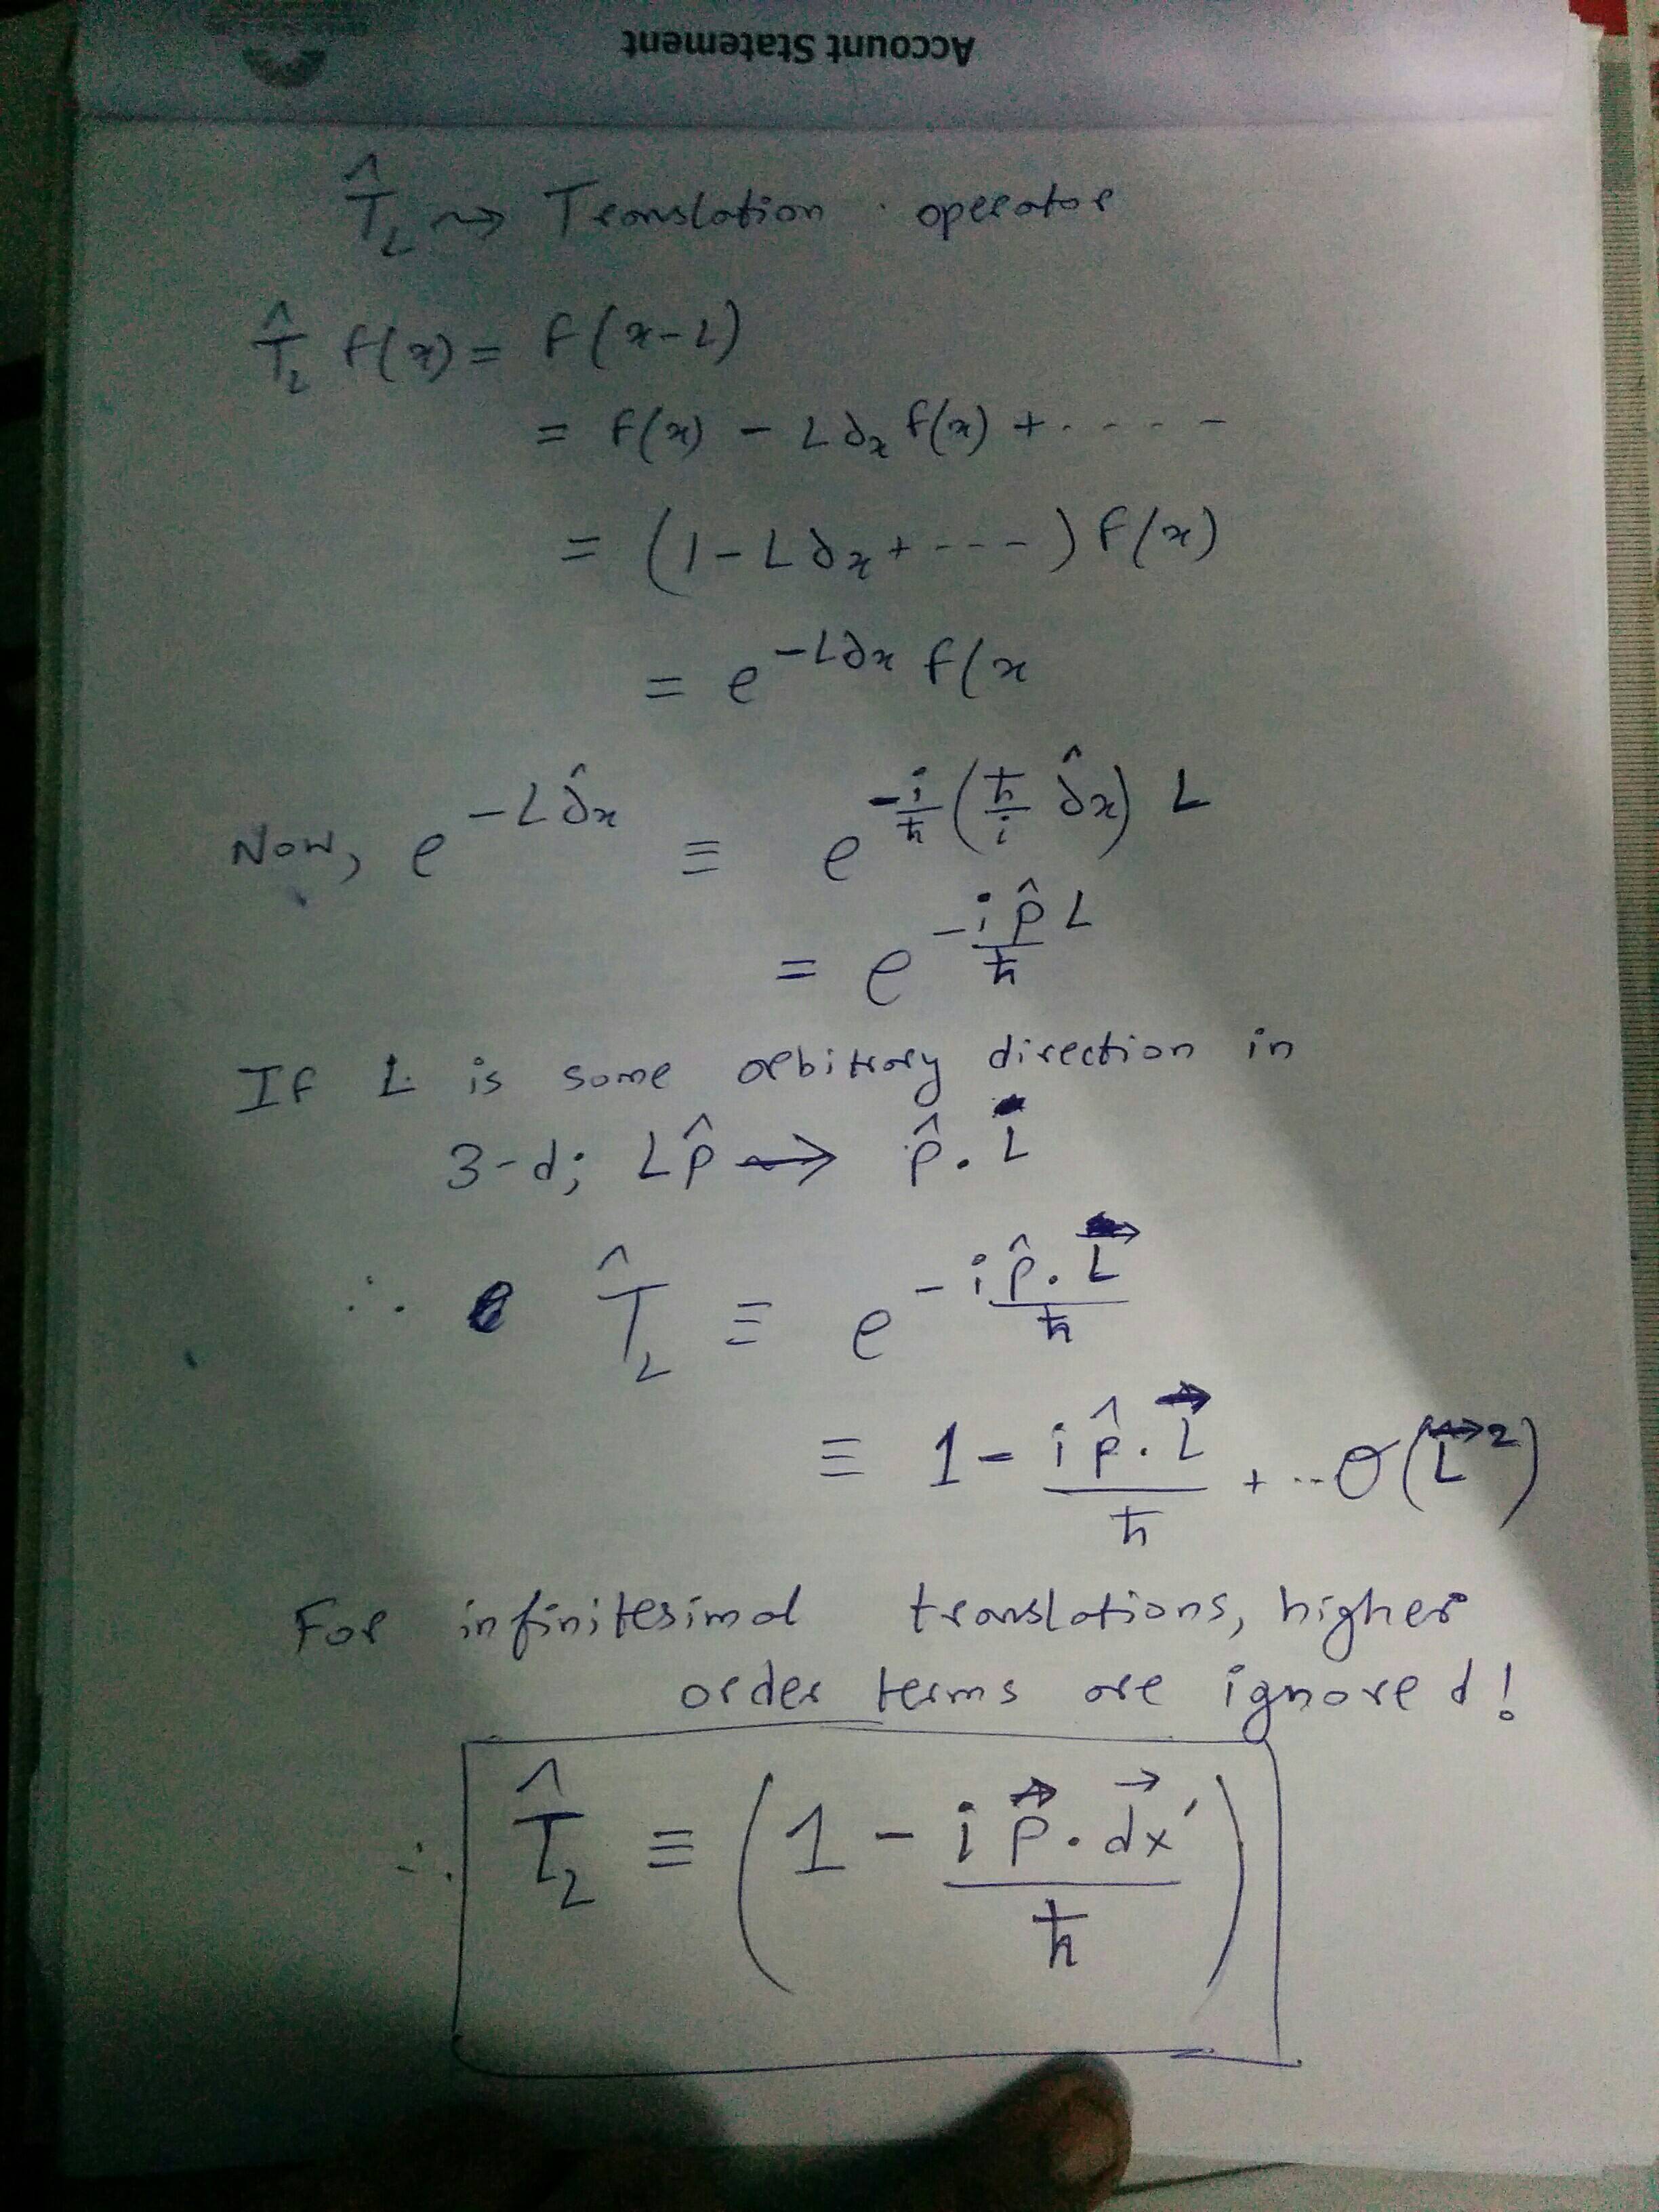 Account Statement
T̂_L ⇝ Translation operator
T̂_L f(x) = f(x-L)
= f(x) - L∂ₓ f(x) + - - - -
= (1 - L∂ₓ + - - - ) f(x)
= e^{-L∂x} f(x
Now, e^{-L∂̂x} ≡ e^{-i/ħ (ħ/i ∂̂x) L}
= e^{-i p̂ L/ħ}
If L is some arbitrary direction in
3-d; Lp̂ → p̂ . L⃗
∴ T̂_L ≡ e^{-i p̂ . L⃗/ħ}
≡ 1 - i p̂ . L⃗/ħ + ... O(L⃗²)
For infinitesimal translations, higher
order terms are ignored!
∴ T̂_L ≡ (1 - i p⃗ . dx⃗′/ħ)